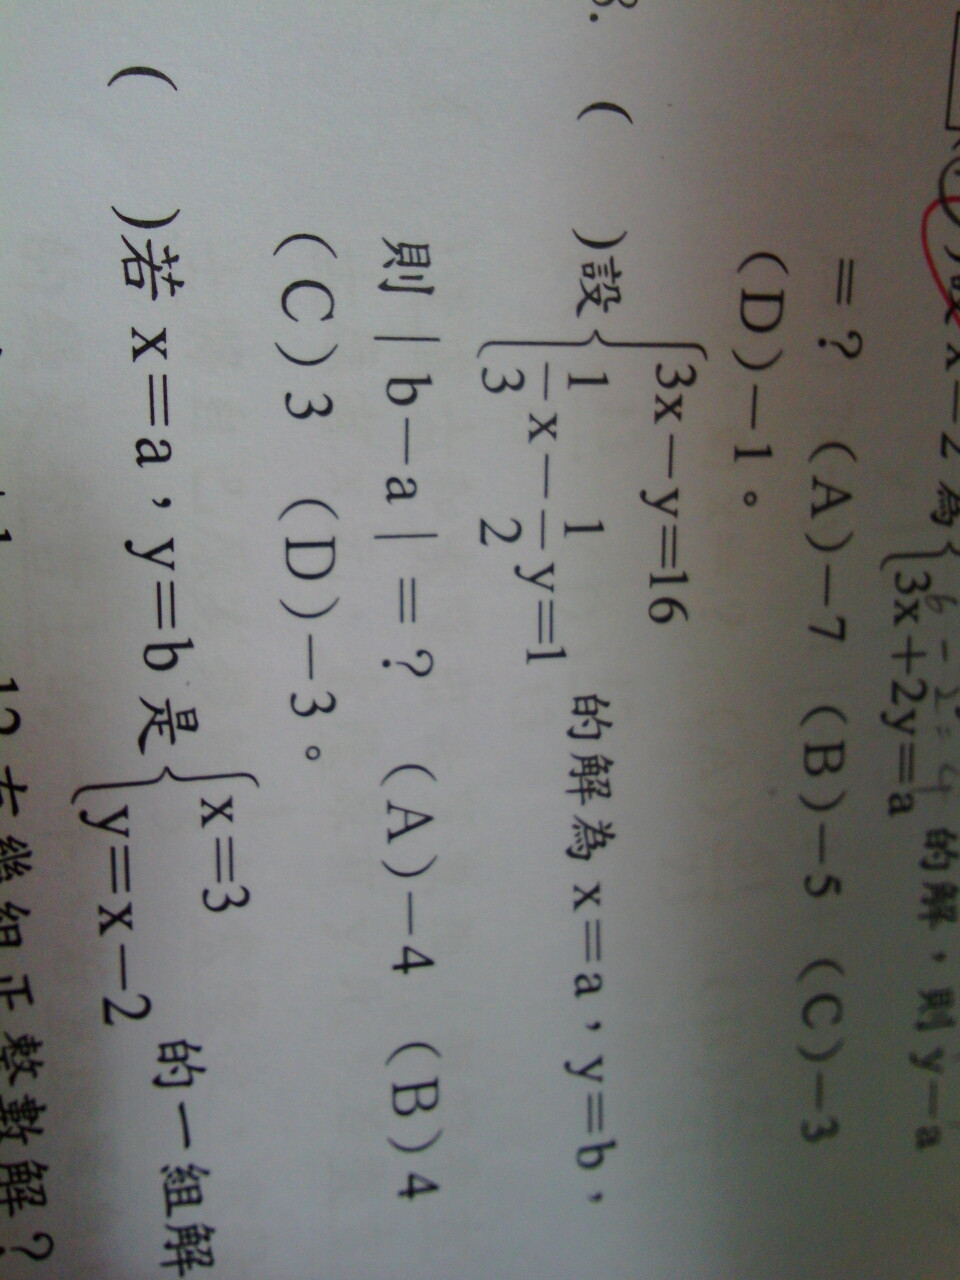 x－2 為
3x＋2y＝a 的解，則 y－a
＝？ (A)－7 (B)－5 (C)－3
(D)－1。
( )設 { 3x－y＝16
1/3 x－1/2 y＝1 的解為 x＝a，y＝b，
則｜b－a｜＝？ (A)－4 (B)4
(C)3 (D)－3。
( )若 x＝a，y＝b 是 { x＝3
y＝x－2 的一組解
12 有幾組正整數解？